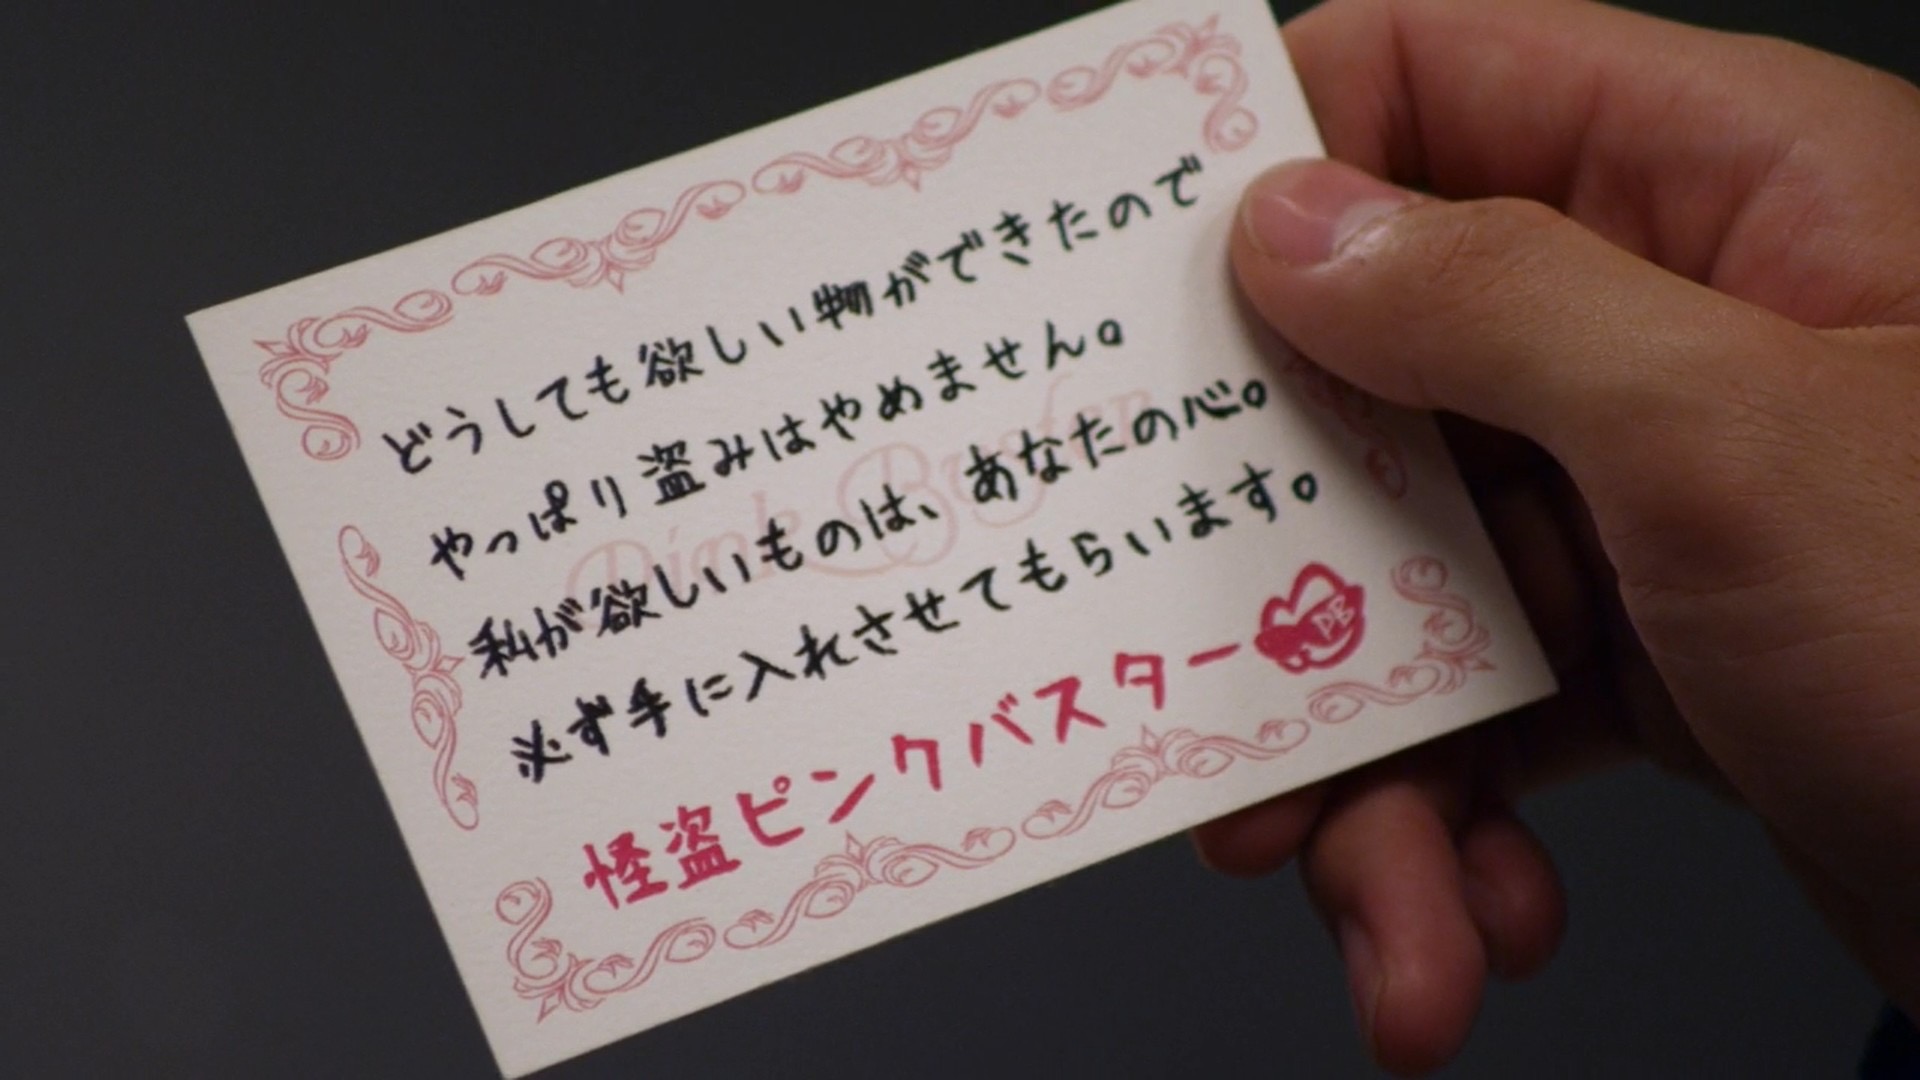 どうしても欲しい物ができたので
やっぱり盗みはやめません。
私が欲しいものは、あなたの心。
必ず手に入れさせてもらいます。
怪盗ピンクバスター
PB
Pink Buster